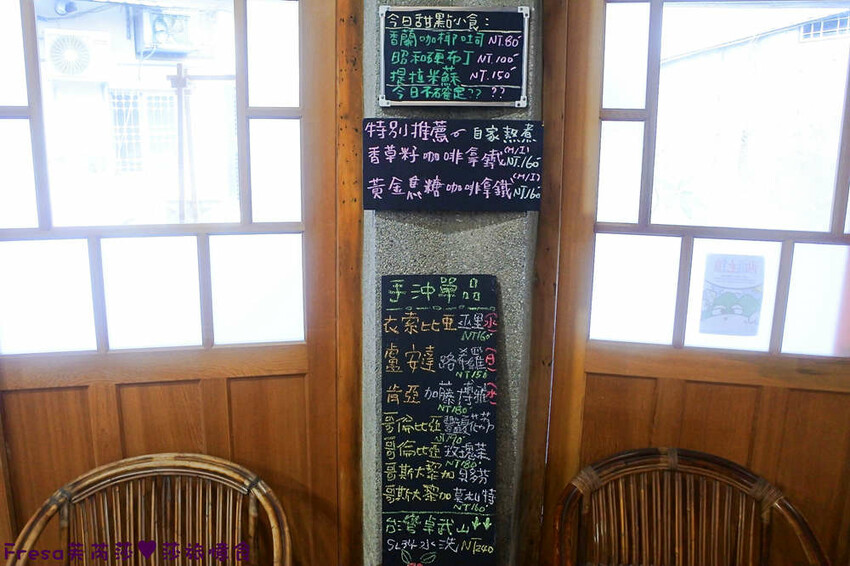 今日甜點小食:
香蘭咖椰吐司 NT.80
昭和硬布丁 NT.100
提拉米蘇 NT.150
今日不限定?? ??
特別推薦 自家熬煮
香草籽咖啡拿鐵(H/I) NT.160
黃金焦糖咖啡拿鐵(H/I) NT.160
手沖單品
衣索比亞 巫里(水)
NT160
盧安達 路希羅(日)
NT150
肯亞 加藤博雅(水)
NT180
哥倫比亞
NT190
哥倫比亞 玫瑰葉
NT180
哥斯大黎加 貝多芬
哥斯大黎加 莫札特
NT160
台灣卓武山↓↓
SL34 水洗 NT240
Fresa芙芮莎♥莎旅憶食